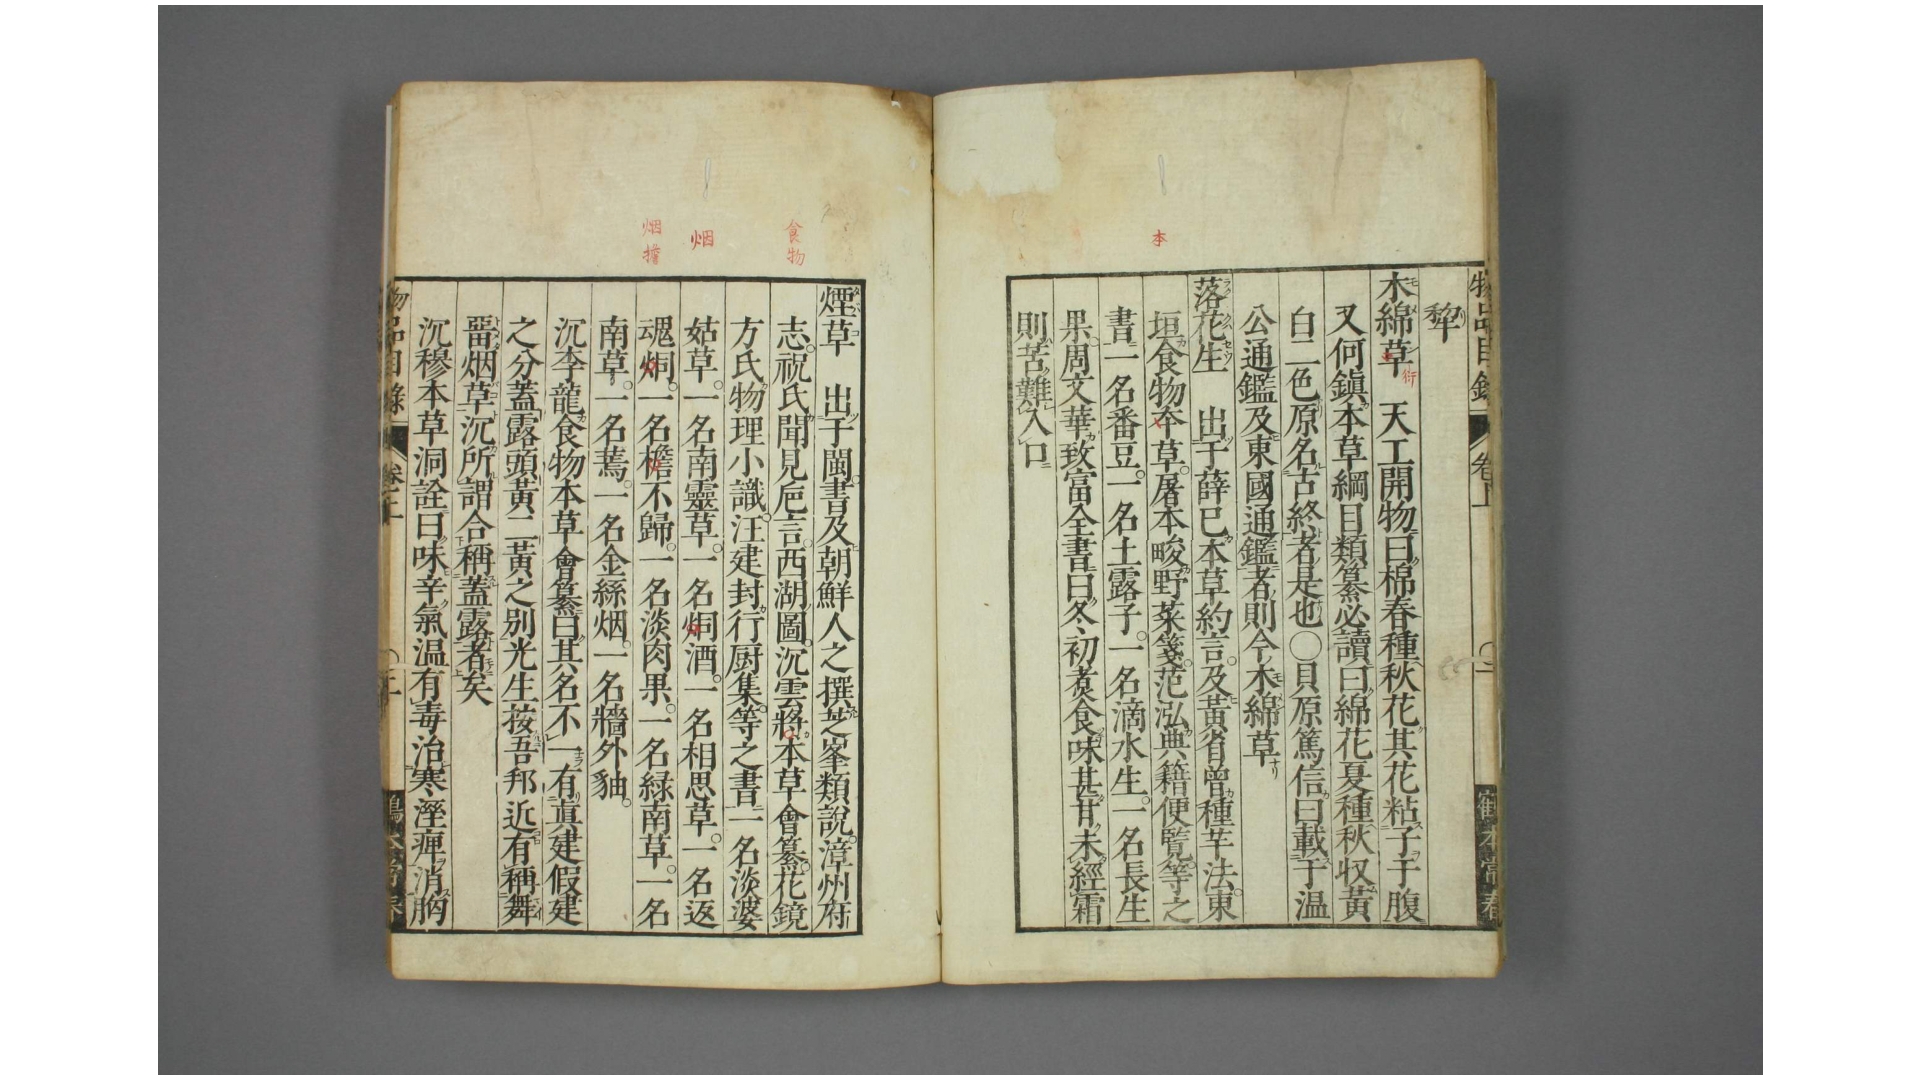 物品目録 卷上
犂
木綿草 天工開物曰棉春種秋花其花粘子于腹
又何鎮本草綱目類纂必讀曰綿花夏種秋収黃
白二色原名古終者是也〇貝原篤信曰載于温
公通鑑及東國通鑑者則今木綿草
落花生 出于薛已本草約言及黃省曾種芋法東
垣食物本草屠本畯野菜箋范泓典籍便覧等之
書一名番豆一名土露子一名滴水生一名長生
果周文華致富全書曰冬初煮食味甚甘未經霜
則苦難入口
本
衍
煙草 出于閩書及朝鮮人之撰芝峯類說漳州府
志祝氏聞見巵言西湖圖沉雲將本草會纂花鏡
方氏物理小識汪建封行厨集等之書一名淡婆
姑草一名南靈草一名烔酒一名相思草一名返
魂烔一名檐不歸一名淡肉果一名緑南草一名
南草一名蔫一名金絲烟一名牆外㹨
沉李龍食物本草會纂曰其名不一有眞建假建
之分蓋露頭黃二黃之别光生按吾邦近有稱舞
畱烟草沉所謂合稱蓋露者矣
沉穆本草洞詮曰味辛氣温有毒治寒溼痺消胸
食物
烟
烟
擔
物品目録 卷上